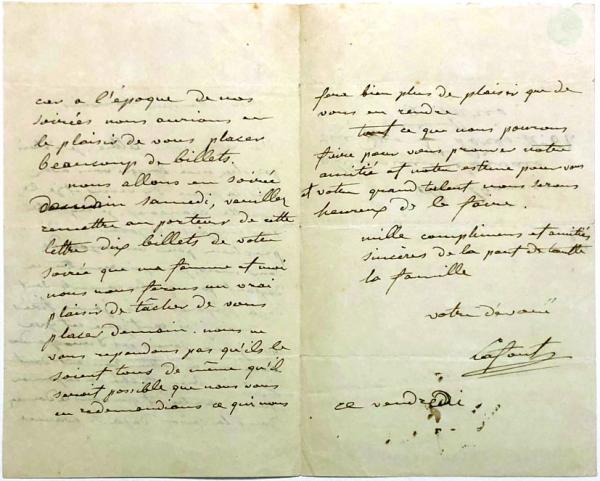 car a l'époque de nos
soirées nous aurions eu
le plaisir de vous placer
beaucoup de billets.
nous allons en soirée
demain samedi, veuillez
remettre au porteur de cette
lettre dix billets de votre
soirée que ma femme et moi
nous nous ferons un vrai
plaisir de tâcher de vous
placer demain. nous ne
vous repondons pas qu'ils le
soient tous de même qu'il
serait possible que nous vous
en redemandions ce qui nous
fera bien plus de plaisir que de
vous en rendre
tout ce que nous pourrons
faire pour vous prouver notre
amitié et notre estime pour vous
et votre grand talent nous serons
heureux de le faire.
mille complimens et amitiés
sincères de la part de toutte
la famille
votre dévoué
Lafont
ce vendredi